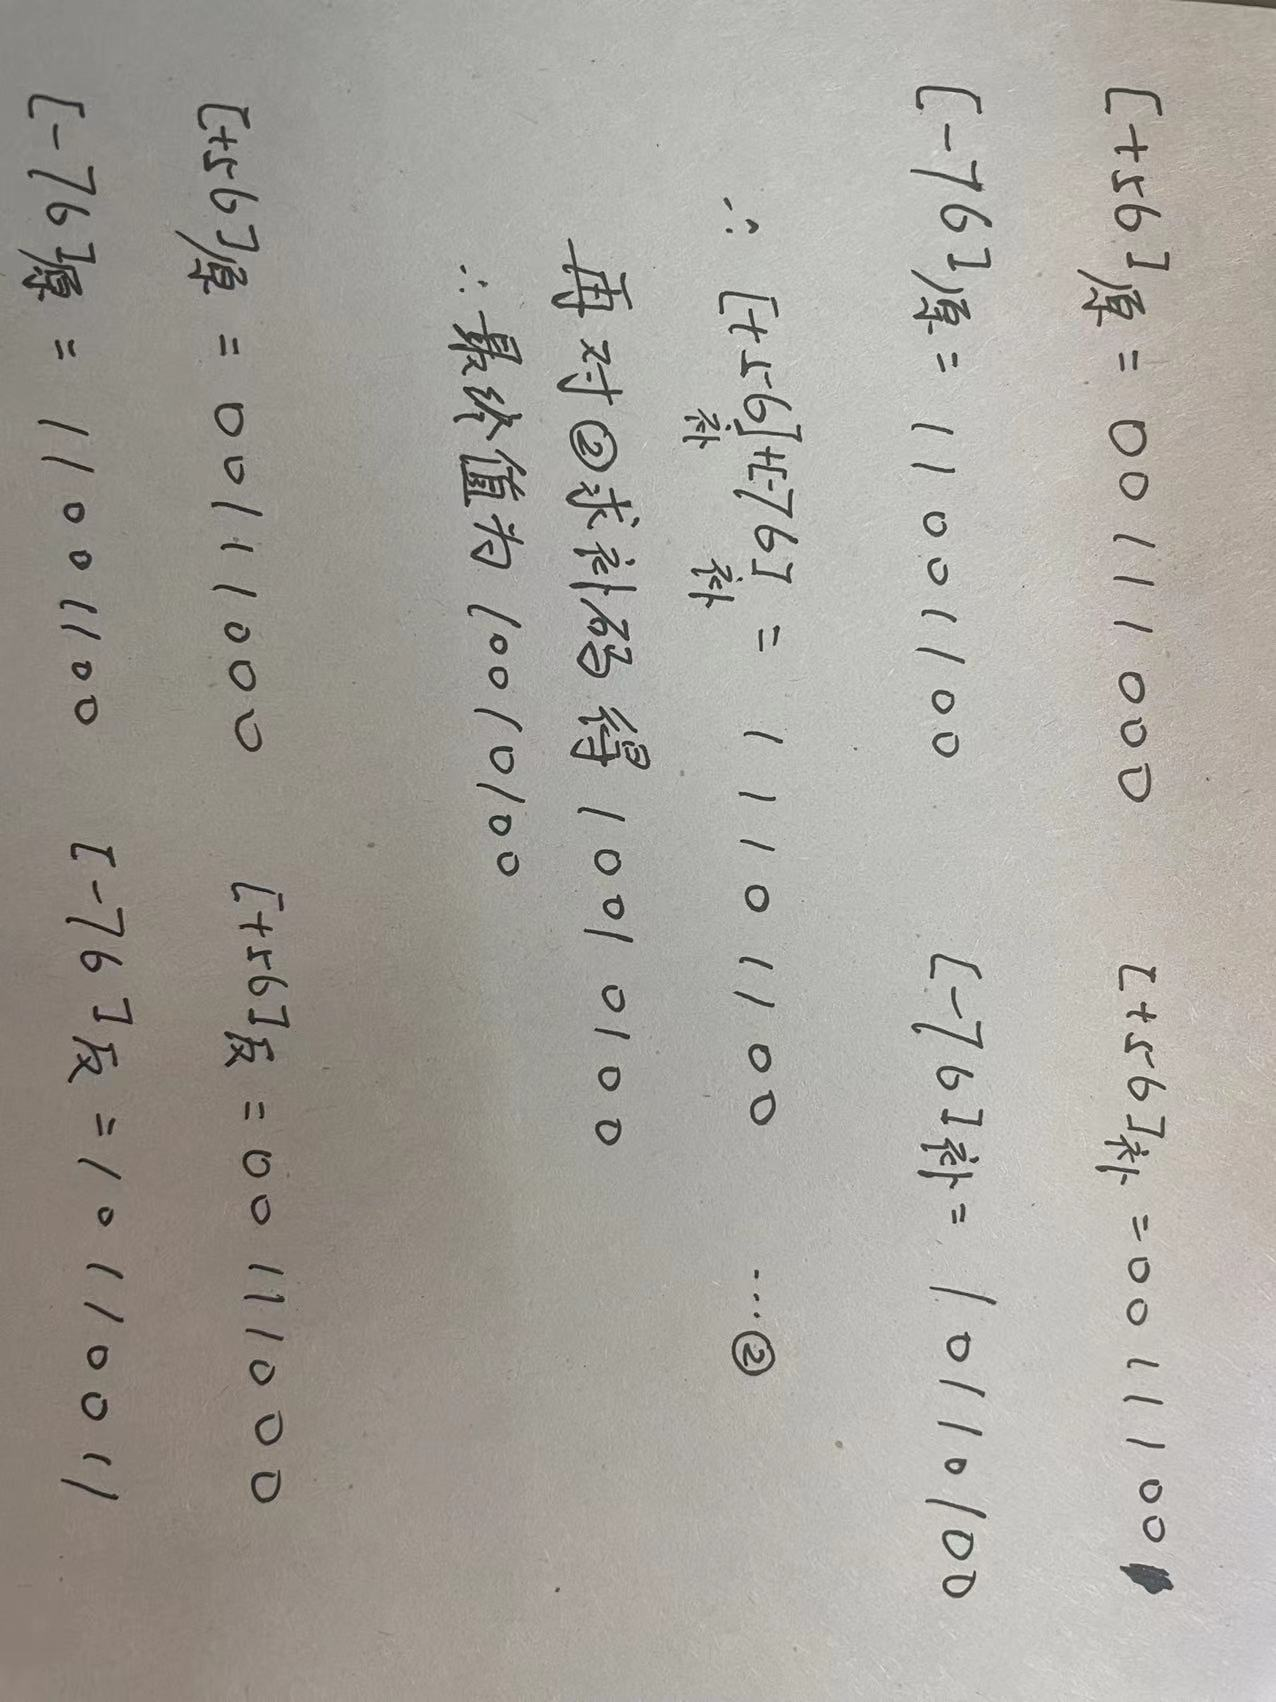 [+56]原 = 00111000 [+56]补 = 0011100
[-76]原 = 11001100 [-76]补 = 10110100
∴ [+56]补+[-76]补 = 11101100 ...②
再对②求补码得 10010100
∴最终值为 10010100
[+56]原 = 00111000 [+56]反 = 00111000
[-76]原 = 11001100 [-76]反 = 10110011